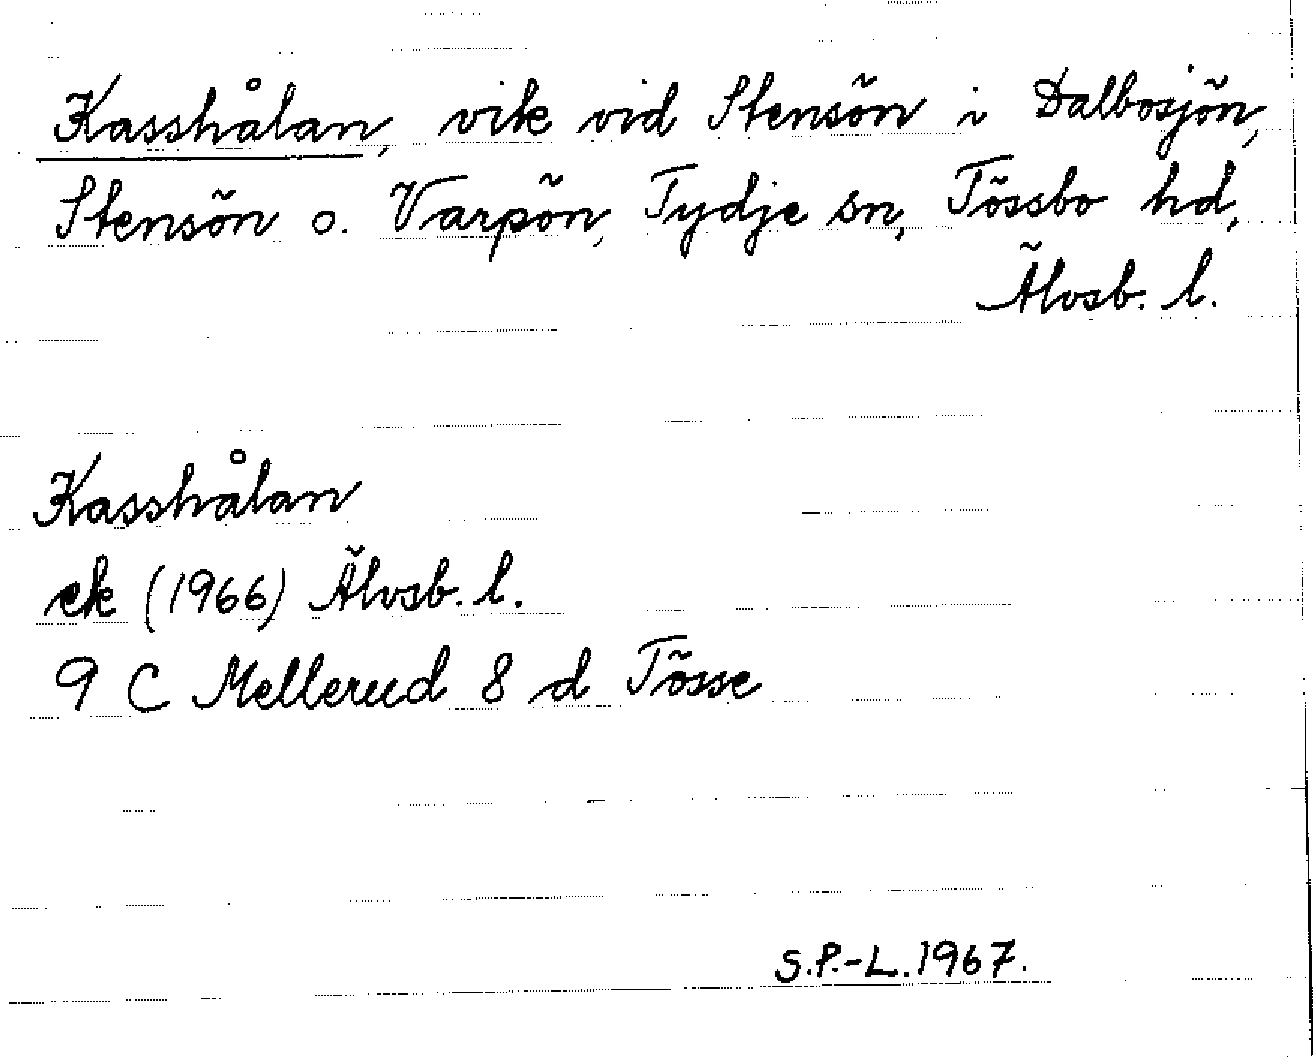 Kasshålan, vik vid Stensön i Dalbosjön,
Stensön o. Varpön, Tydje sn, Tössbo hd,
Älvsb. l.
Kasshålan
ek (1966) Älvsb. l.
9 C Mellerud 8 d Tösse
S.P.-L. 1967.